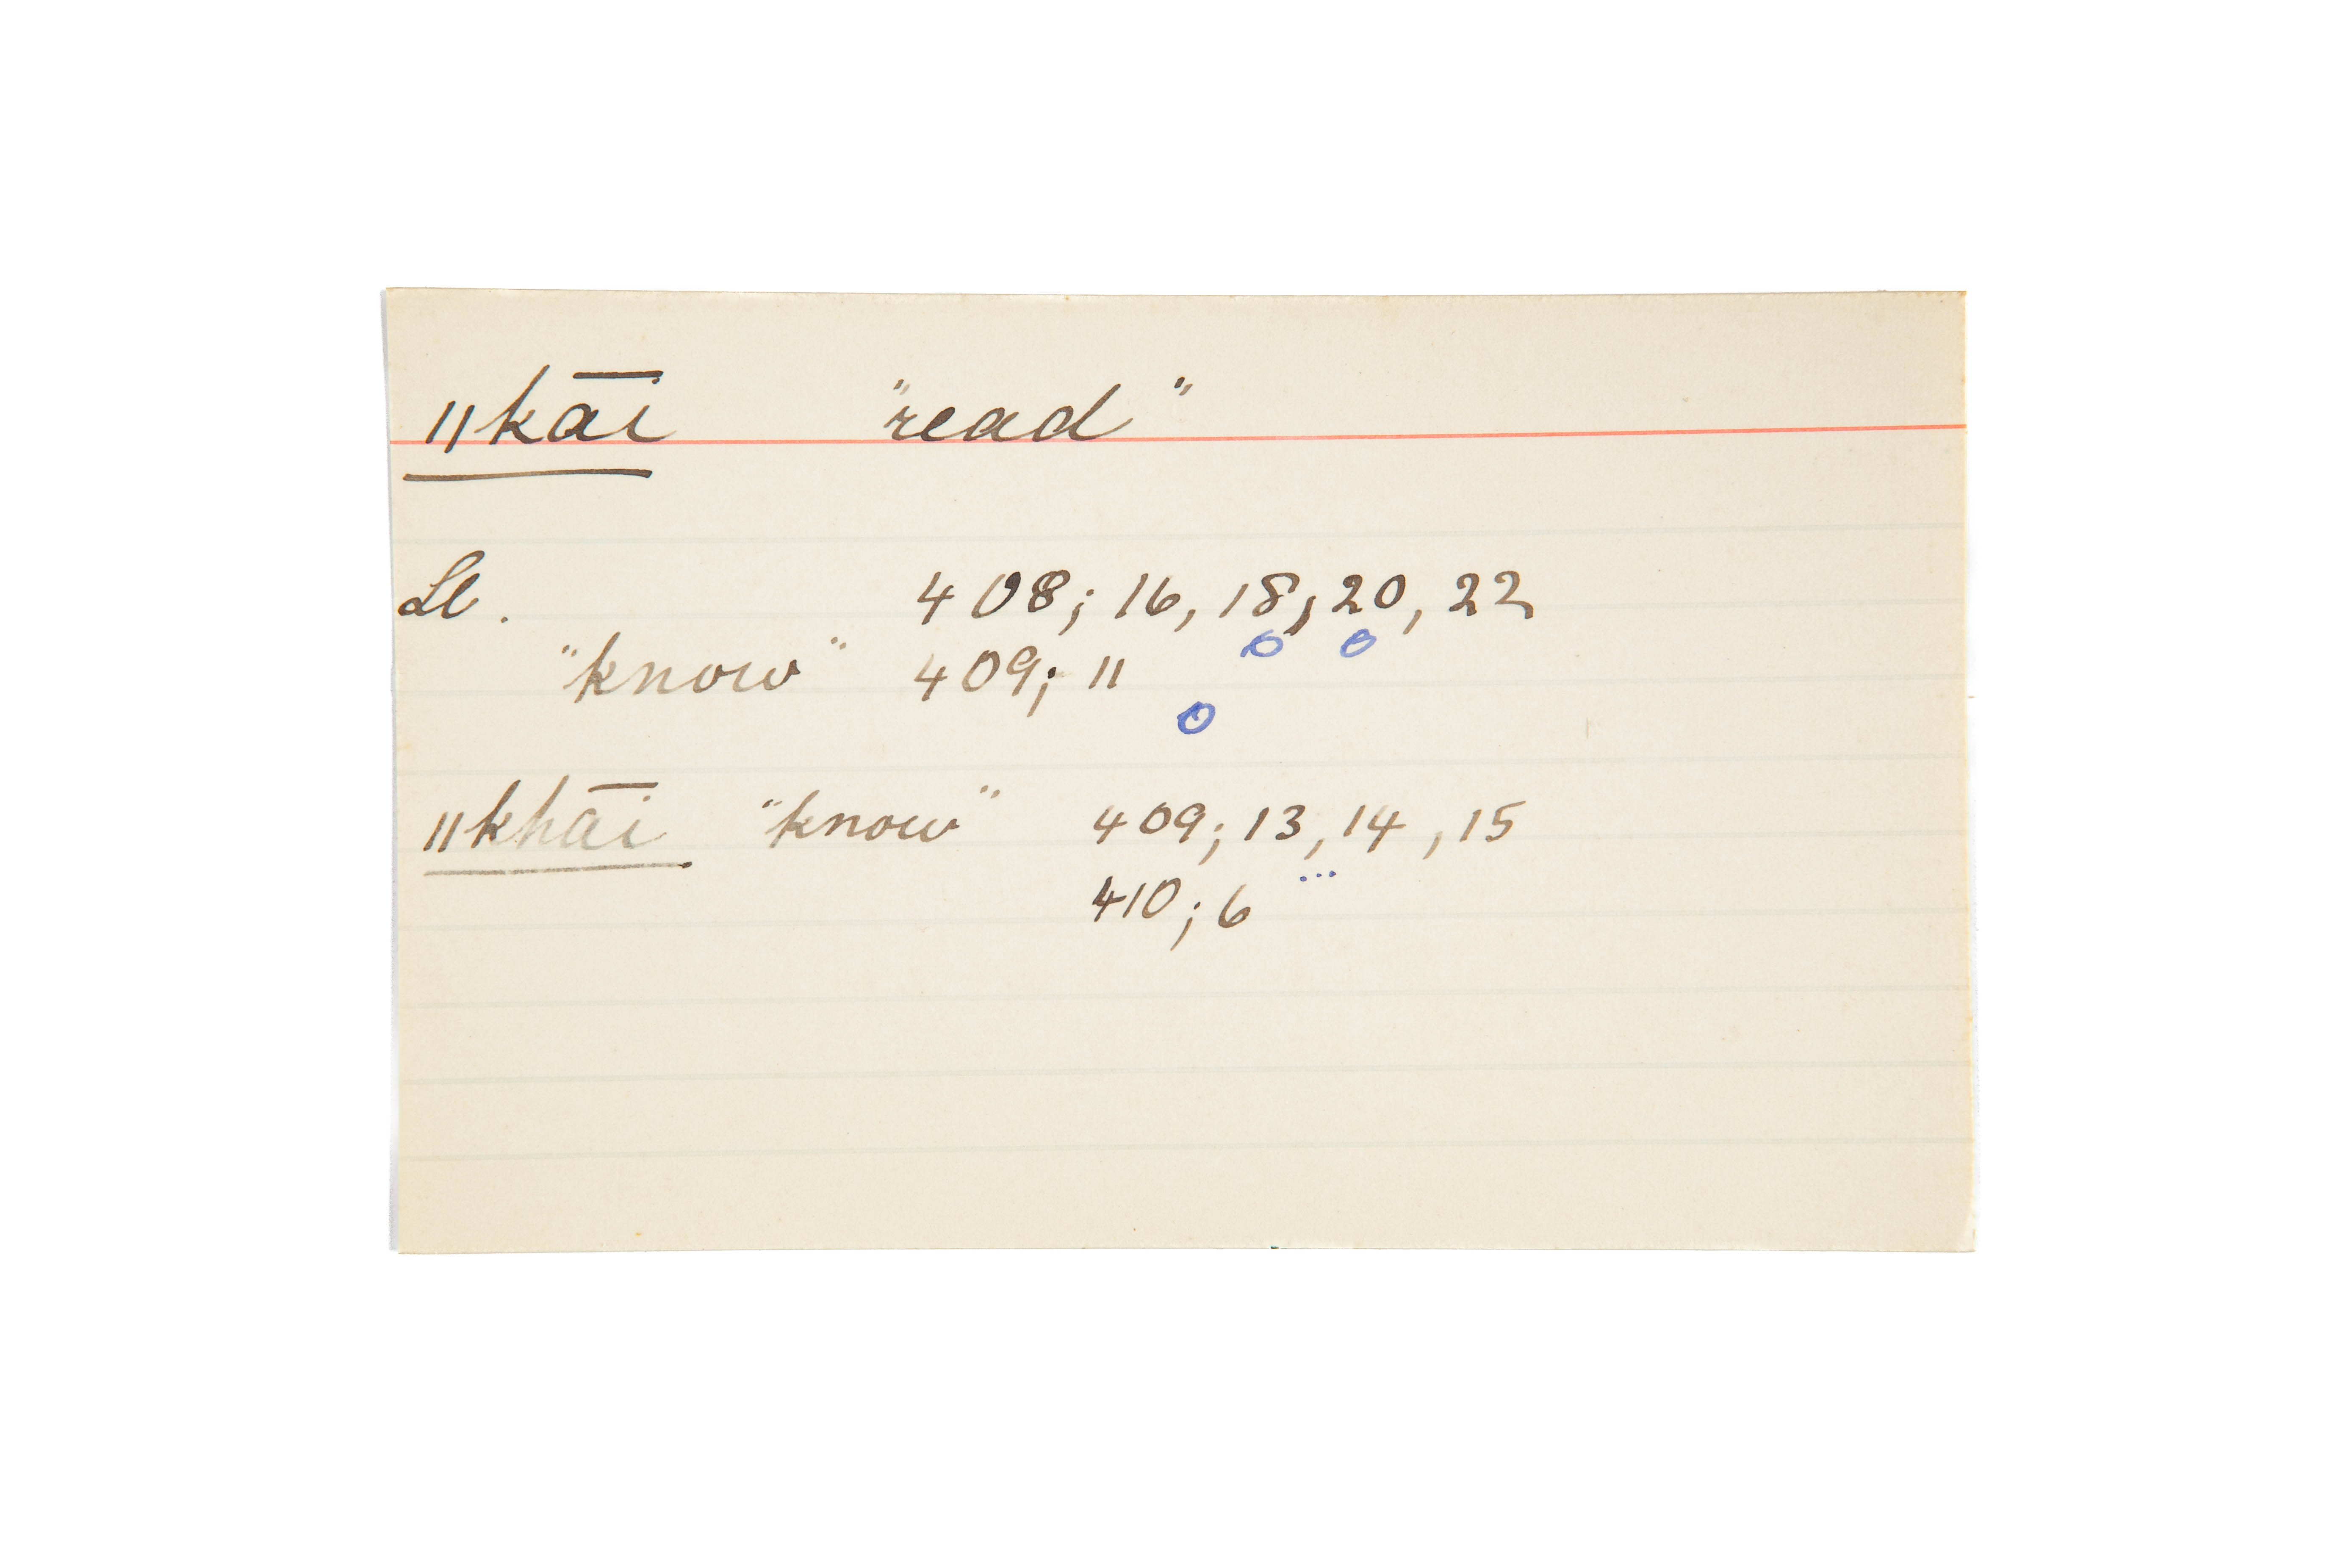 ǁkāī "read"
Ll. 408; 16, 18, 20, 22
"know" 409; 11
ǁkhāī "know" 409; 13, 14, 15
410; 6